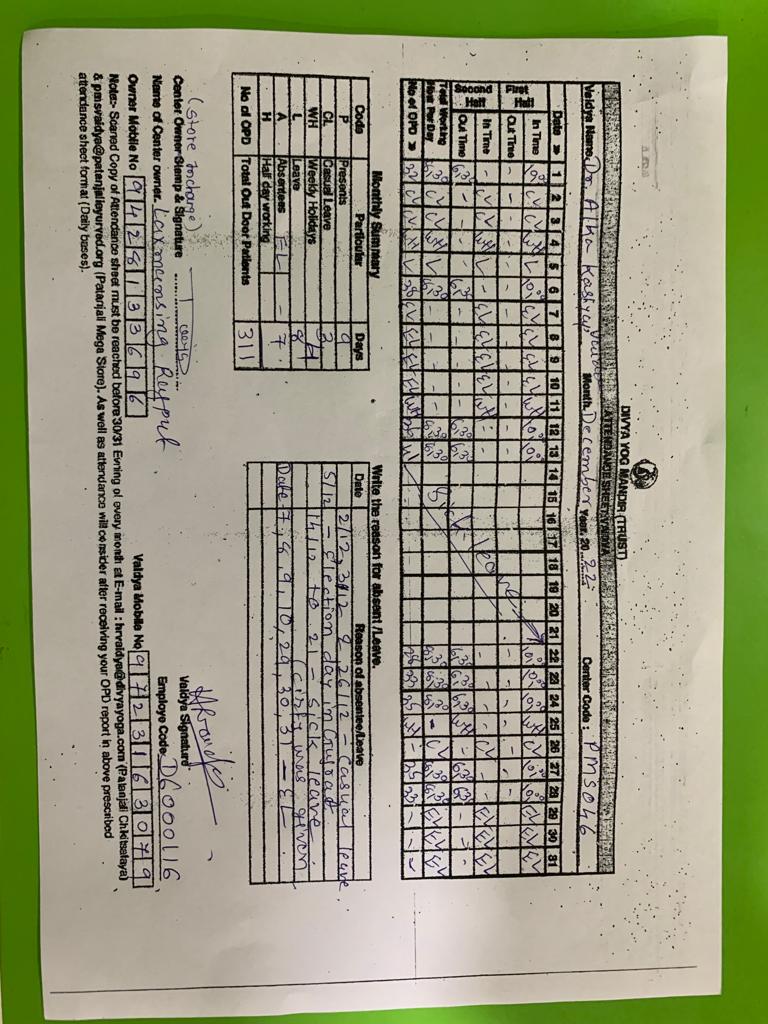 DIVYA YOG MANDIR (TRUST)
ATTENDANCE SHEET VAIDYA
Vaidya Name. Dr. Alka Kashyap Month. December Year. 2022 Center Code : PMS046
Date » 1 2 3 4 5 6 7 8 9 10 11 12 13 14 15 16 17 18 19 20 21 22 23 24 25 26 27 28 29 30 31
First Half
In Time 10.00 CL CL WH L 10.00 EL EL EL EL WH 10.00 10.00 10.00 10.00 10.00 WH CL 10.00 10.00 EL EL EL
Out Time - - - - - - - - - - - - - - - - - - - - - - -
Sick leave
Second Half
In Time - CL CL WH L - EL EL EL EL WH - - - - - - CL - - EL EL EL
Out Time 6.30 - - - - 6.30 - - - - - 6.30 6.30 6.30 6.30 6.30 WH - 6.30 6.30 - - -
Total Working Hour Per Day 8.30 CL CL WH L 8.30 - - - - - 8.30 8.30 8.30 8.30 8.30 - CL 8.30 8.30 EL EL EL
No of OPD » CL CL WH L 38 EL EL EL EL WH 28 23 25 WH - 25 23 - - -
Monthly Summary
Code Particular Days
P Presents 9
CL Casual Leave 3
WH Weekly Holidays 4
L Leave 8
A Absentees EL - 7
H Half day working
No of OPD Total Out Door Patients 311
Write the reason for absent /Leave.
Date Reason of absentee/Leave
2/12, 3/12 & 26/12 - Casual leave.
5/12 - Election day in Gujrat
14/12 to 21 - sick leave
was given
Date 7, 8, 9, 10, 29, 30, 31 - EL
(Store Incharge)
Center Owner Stamp & Signature
Name of Center owner. Laxmansing Rajput
Owner Mobile No 9428133696
Vaidya Signature
Employe Code D6000116
Vaidya Mobile No 9723163079
Note:- Scaned Copy of Attendance sheet must be reached before 30/31 Evning of every month at E-mail : hrvaidya@divyayoga.com (Patanjali Chikitsalaya)
& pmsvaidya@patanjaliayurved.org (Patanjali Mega Store). As well as attendance will consider after receiving your OPD report in above prescribed
attendance sheet format (Daily bases).